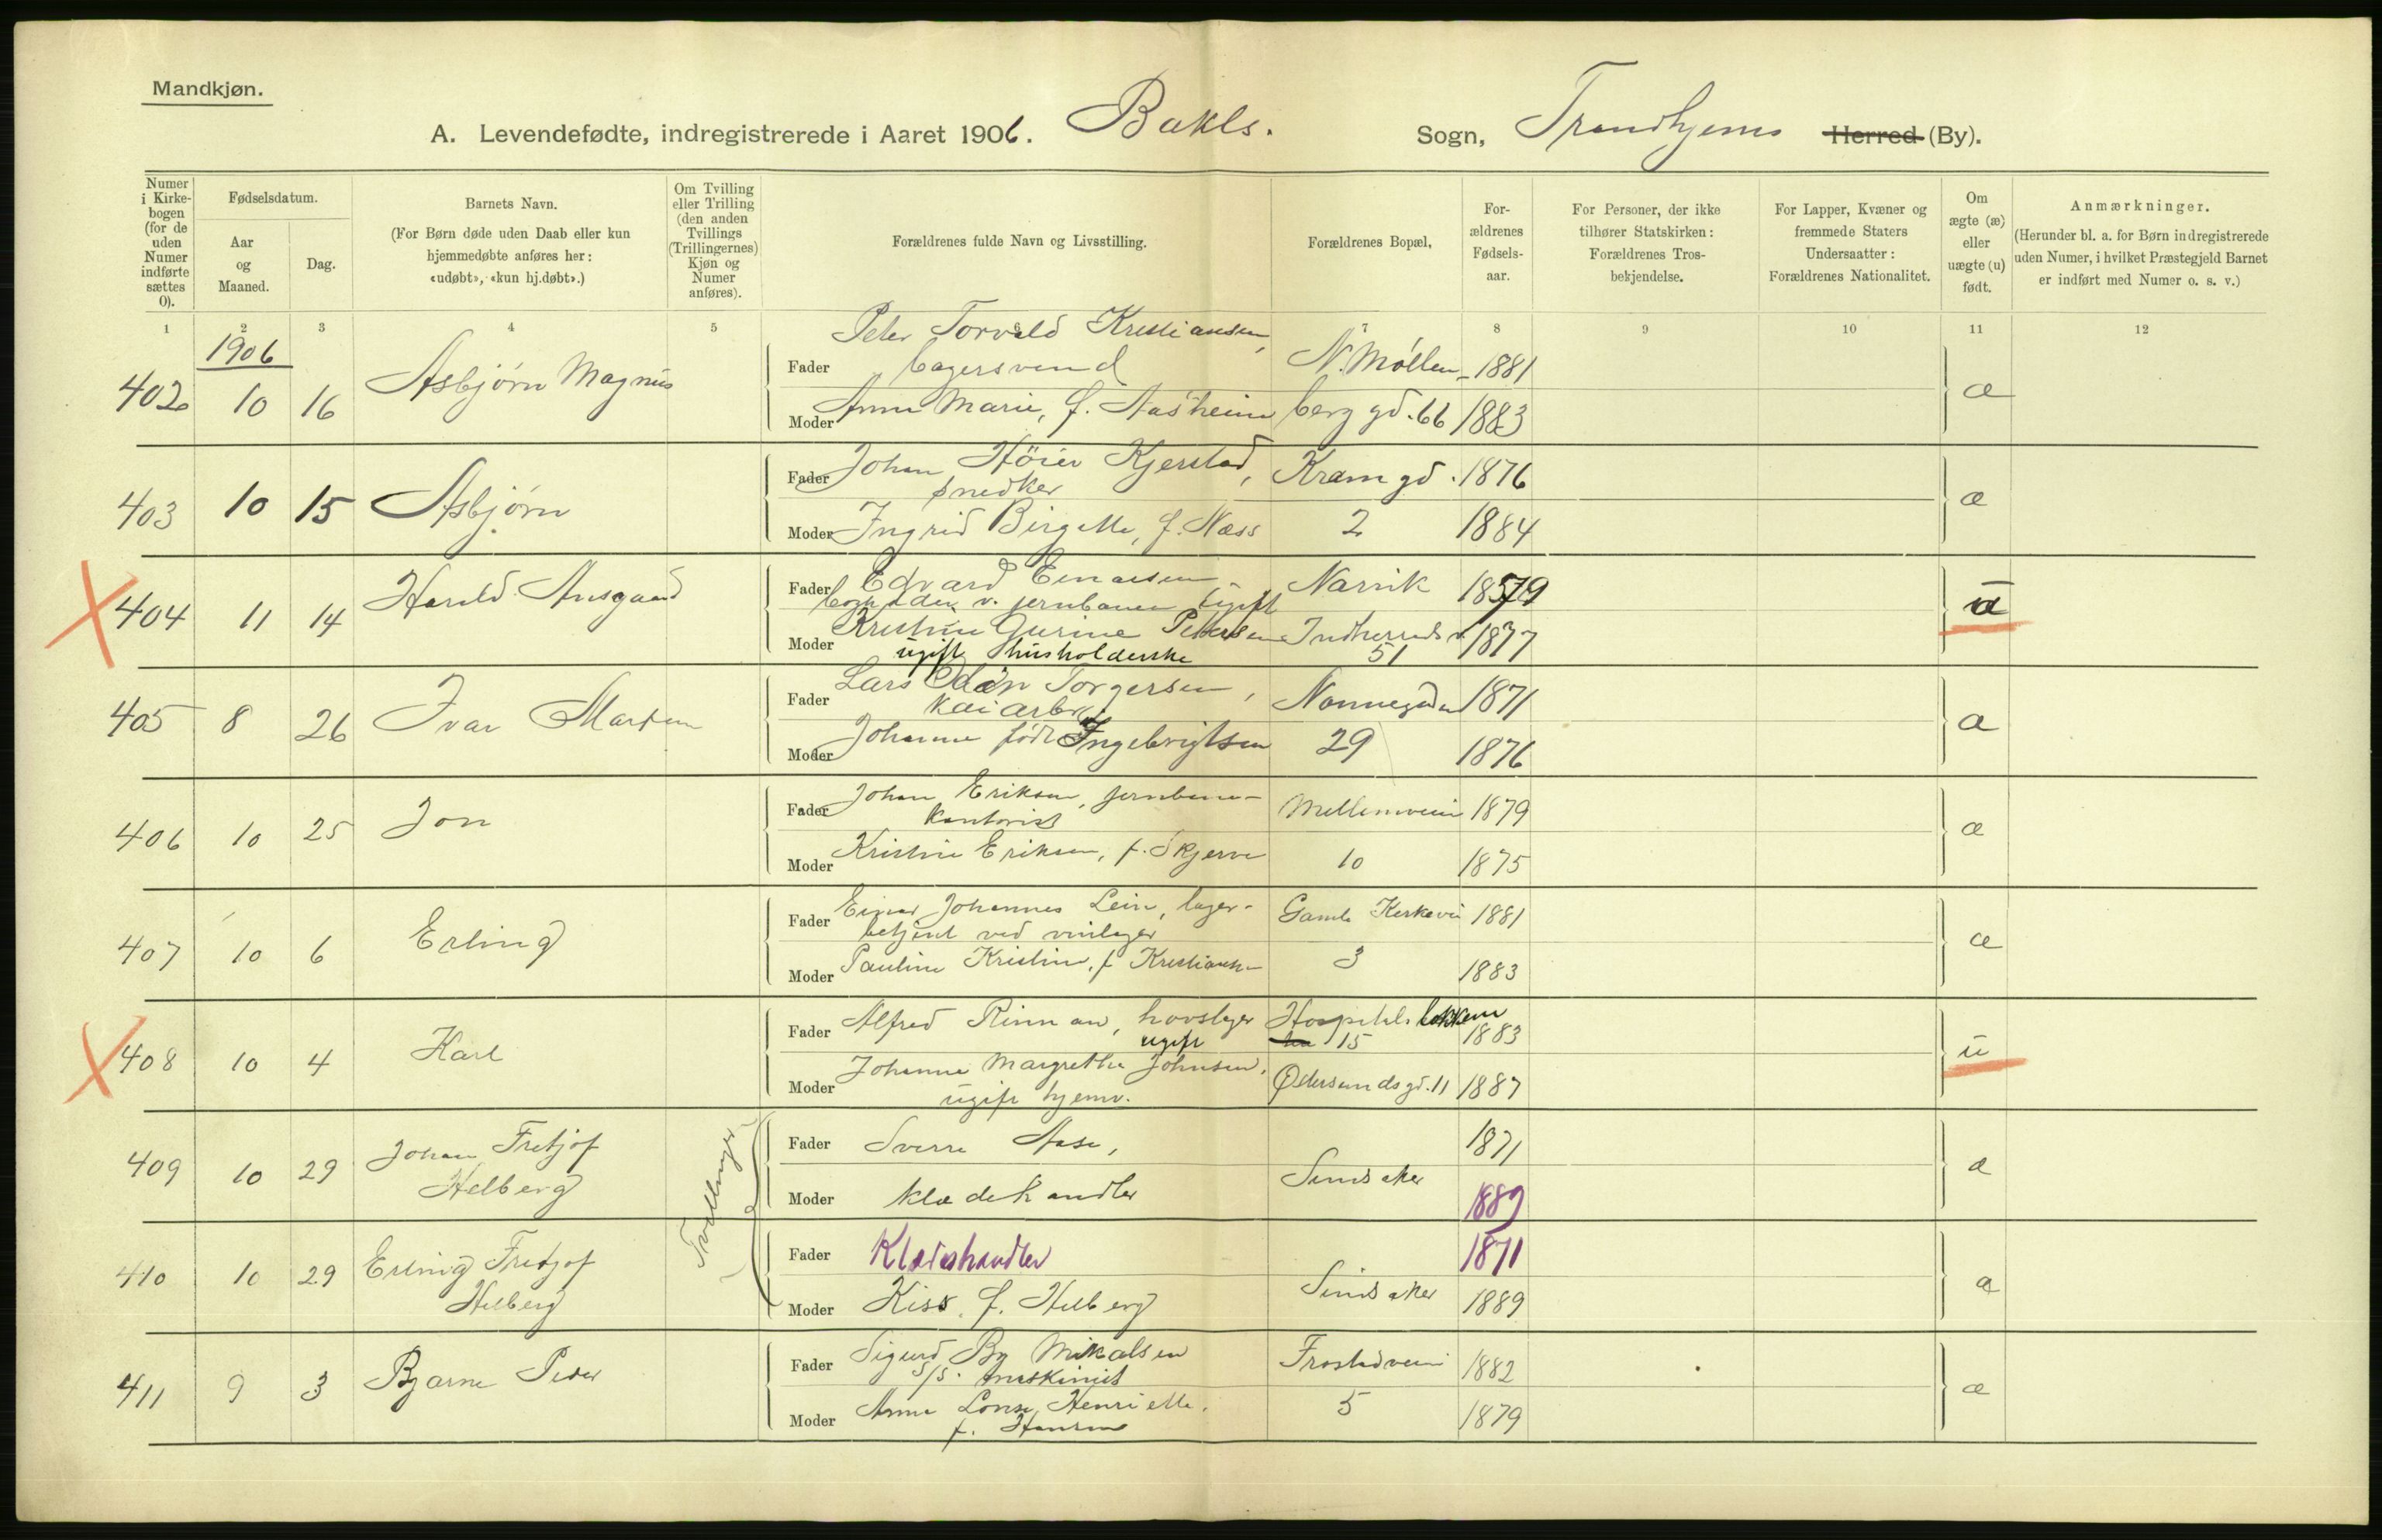 Mandkjøn.
A. Levendefødte, indregistrerede i Aaret 1906. Bakls. Sogn, Trondhjems Herred (By).
Numer i Kirkebogen (for de uden Numer indførte sættes 0).
Fødselsdatum.
Aar og Maaned.
Dag.
Barnets Navn.
(For Børn døde uden Daab eller kun hjemmedøbte anføres her: «udøbt», «kun hj.døbt».)
Om Tvilling eller Trilling (den anden Tvillings (Trillingernes) Kjøn og Numer anføres).
Forældrenes fulde Navn og Livsstilling.
Forældrenes Bopæl,
Forældrenes Fødselsaar.
For Personer, der ikke tilhører Statskirken: Forældrenes Trosbekjendelse.
For Lapper, Kvæner og fremmede Staters Undersaatter: Forældrenes Nationalitet.
Om ægte (æ) eller uægte (u) født.
Anmærkninger.
(Herunder bl. a. for Børn indregistrerede uden Numer, i hvilket Præstegjeld Barnet er indført med Numer o. s. v.)
1 2 3 4 5 6 7 8 9 10 11 12
1906
402 10 16 Asbjørn Magnus
Fader Peter Torvald Kristiansen, bagersvend N. Møllen- 1881
Moder Anna Marie, f. Aasheim berg gd. 66 1883
æ
403 10 15 Asbjørn
Fader Johan Höier Kjerstad, snedker Kramgd. 1876
Moder Ingrid Birgitte, f. Næss 2 1884
æ
404 11 14 Harald Ansgaard
Fader Edvard Einarsen v. jernbanen ugift Narvik 1879
Moder Kristine Gurine Pettersen ugift husholderske Indherreds v. 51 1877
u
405 8 26 Ivar Martin
Fader Lars Odin Torgersen, kaiarb. Nonnegaden 1871
Moder Johanne født Ingebrigtsen 29 1876
æ
406 10 25 Jon
Fader Johan Eriksen, jernbane- kontorist Mellemveien 1879
Moder Kristine Eriksen, f. Skjerve 10 1875
æ
407 10 6 Erling
Fader Einar Johannes Lein, lager- betjent ved vinlager Gamle Kirkevei 1881
Moder Pauline Kristine, f. Kristiansen 3 1883
æ
408 10 4 Karl
Fader Alfred Rinnan, hovslager ugift Hospitalsløkken 15 1883
Moder Johanna Margrethe Johnsen, ugift hjemv. Østersundsgd. 11 1887
u
409 10 29 Johan Fretjof Helberg
Tvillinger
Fader Sverre Aase, 1871
Moder klædehandler Sindsaker 1889
æ
410 10 29 Erling Fretjof Helberg
Fader Klædeshandler 1871
Moder Kiss, f. Helberg Sindsaker 1889
æ
411 9 3 Bjarne Peder
Fader Sigurd By Mikalsen S/S. maskinist Frostadveien 1882
Moder Anna Lovise Henriette, f. Hansen 5 1879
æ